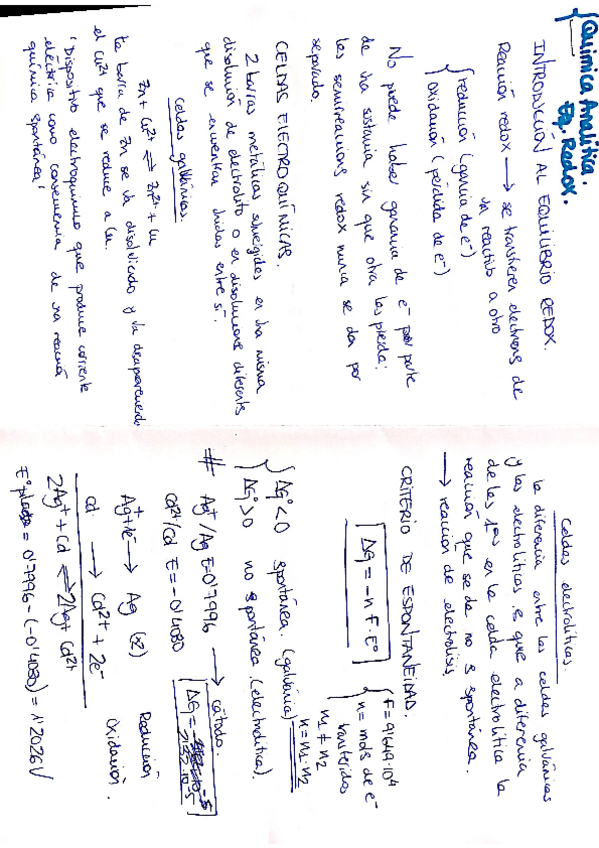 Química Analítica.
Eq. Redox.
INTRODUCCIÓN AL EQUILIBRIO REDOX.
Reacción redox → se transfieren electrones de
un reactivo a otro
{ reducción (ganancia de e⁻)
oxidación (pérdida de e⁻)
No puede haber ganancia de e⁻ por parte
de una sustancia sin que otra los pierda;
las semirreacciones redox nunca se dan por
separado.
CELDAS ELECTROQUÍMICAS.
2 barras metálicas sumergidas en una misma
disolución de electrolito o en disoluciones diferentes
que se encuentran unidas entre sí.
Celdas galvánicas.
Zn + Cu²⁺ ⇌ Zn²⁺ + Cu
la barra de Zn se va disolviendo y va desapareciendo
el Cu²⁺ que se reduce a Cu.
'Dispositivo electroquímico que produce corriente
eléctrica como consecuencia de una reacción
química espontánea'
Celdas electrolíticas.
la diferencia entre las celdas galvánicas
y las electrolíticas es que a diferencia
de las 1ᵃˢ en la celda electrolítica la
reacción que se da no es espontánea.
→ reacción de electrólisis.
CRITERIO DE ESPONTANEIDAD.
ΔG = -n F · E°
{ F = 9'649·10⁴
n = mols de e⁻
transferidos
n₁ ≠ n₂
n = n₁ · n₂
{ ΔG° < 0 espontánea. (galvánica)
ΔG° > 0 no espontánea. (electrolítica).
# Ag⁺/Ag E=0'7996 → cátodo.
Cd²⁺/Cd E=-0'4030
Ag⁺+1e⁻ → Ag (x2) Reducción
Cd → Cd²⁺ + 2e⁻ Oxidación.
2Ag⁺ + Cd ⇌ 2Ag + Cd²⁺
= 0'7996 - (-0'4030) = 1'2026V